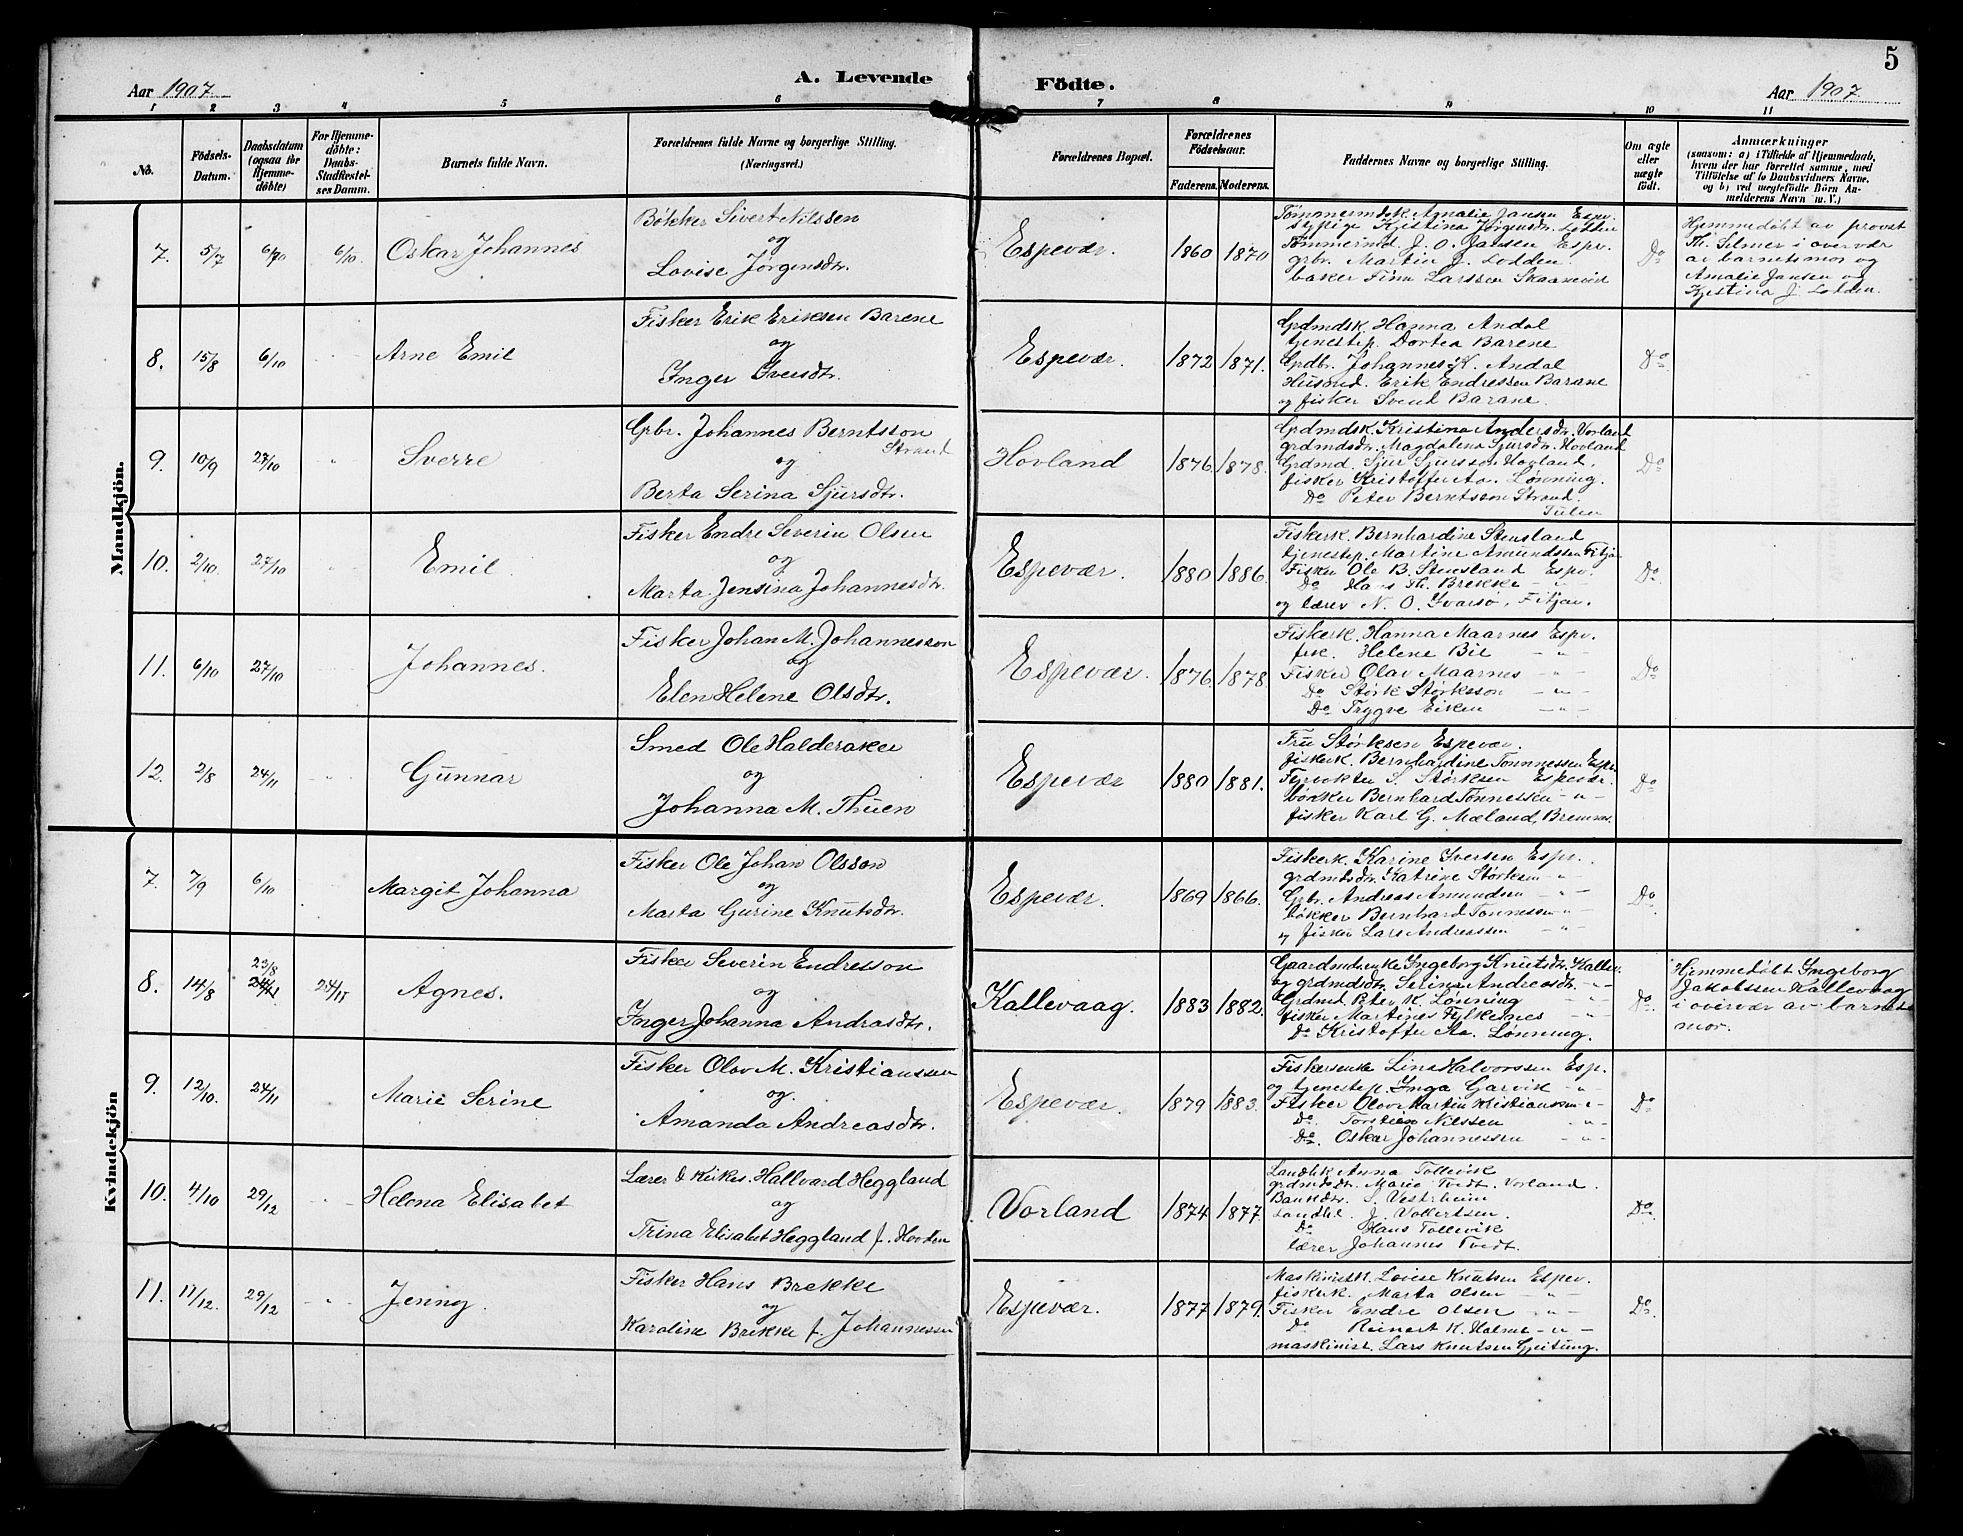 5
Aar 1907
A. Levende Födte.
Aar 1907
1 2 3 4 5 6 7 8 9 10 11
No.
Födsels-Datum.
Daabsdatum (ogsaa for Hjemmedöbte)
For Hjemmedøbte: Daabs-Stadfestelses Datum.
Barnets fulde Navn.
Forældrenes fulde Navne og borgerlige Stilling.
(Næringsvei.)
Forældrenes Bopæl.
Forældrenes Födselsaar.
Faderens. Moderens.
Faddernes Navne og borgerlige Stilling.
Om ægte eller uægte födt.
Anmærkninger
(saasom: a) i Tilfælde af Hjemmedaab,
hvem der har forrettet samme, med
Tilföielse af to Daabsvidners Navne,
og b) ved uægtefödte Börn An-
melderens Navn m. V.)
Mandkjön.
7. 5/7 6/10 6/10 Oskar Johannes
Bökker Sivert Nilssen
og
Lovise Jörgensdtr.
Espevær. 1860 1870
Tömmermdsk Amalie Jansen Espv.
sypige Kjistina Jörgensdtr. Lodden
Tömmermd. J. O. Jansen Espv.
grbr. Martin J. Lodden.
baker Finn Larssen Skaanevik
Do
Hjemmedöbt av provst
Th. Selmer i overvær
av barnets mor og
Amalie Jansen og
Kjistina J. Lodden.
8. 15/8 6/10 Arne Emil
Fisker Erik Eriksen Barene
og
Inger Iversdtr.
Espevær. 1872 1871.
Grdmdsk Hanna Andal
tjenestep. Dortea Barene
Grdbr. Johannes K. Andal
Husmd. Erik Endressen Barane
og fisker Svend Barane.
Do
9. 10/9 27/10 Sverre
Grbr. Johannes Berntsson
Strand
og
Berta Serina Sjursdtr.
Hovland 1876. 1878.
Grdmdsk. Kristina Andersdtr. Vorland
grdmdsdtr. Magdalena Sjursdtr. Hovland
Grdmd. Sjur Sjursson Hovland.
fisker Kristoffer Aa. Lønning.
Do Peter Berntsson Strand.
Do
10. 2/10. 27/10 Emil.
Fisker Endre Severin Olsen
og
Marta Jensina Johannesdtr.
Espevær. 1880 1886.
Fiskerk. Bernhardine Stensland
tjenestep. Martine Amundsen Fitjar
Fisker Ole B. Stensland Espv.
Do Hans Th. Brekke - " -
og lærer N. O. Ivarsø, Fitjar.
Do
11. 6/10 27/10 Johannes.
Fisker Johan M. Johannesson
og
Elen Helene Olsdtr.
Espevær. 1876. 1878.
Fiskerk. Hanna Maarnes Espv.
fisk. Helene Bie - " -
Fisker Olav Maarnes - " -
Do Störk Störksson - " -
Do Trygve Eiken - " -
Do
12. 2/8 24/11 Gunnar
Smed Ole Halderaker
og
Johanna M. Thuen
Espevær 1880 1881.
Fru Störksen Espevær.
fiskerk. Bernhardine Tönnessen Espv
Fyrvokter S. Störksen Espevær.
bökker Bernhard Tönnessen - " -
fisker Karl G. Mæland, Bremnes.
Do
Kvindekjön
7. 7/9 6/10 Margit Johanna
Fisker Ole Johan Olsson
og
Marta Gurine Knutsdtr.
Espevær. 1869 1866.
Fiskerk. Karine Iversen Espv.
grdmdsdtr. Katrine Störksen - " -
Grbr. Andreas Amundsen - " -
bökker Bernhard Tönnessen - " -
og fisker Lars Andreassen - " -
Do
8. 14/8 23/8 24/11 24/11 Agnes.
Fisker Severin Endresson
og
Inger Johanna Andreasdtr.
Kallevaag. 1883 1882.
Gaardmdenke Ingeborg Knutsdtr. Kallev.
og grdmdsdtr. Serina Andreasdtr. - " -
Grdmd. Peter K. Lönning - " -
fisker Martines Fylkesnes - " -
Do Kristoffer Aa. Lönning.
Do
Hjemmedöbt Ingeborg
Jakobsen Kallevaag
i overvær av barnets
mor.
9. 12/10. 24/11 Marie Serine
Fisker Olav M. Kristianssen
og
Amanda Andreasdtr.
Espevær. 1879 1883.
Fiskerenke Lina Halvorssen Esp.
og tjenestep. Inga Garvik - " -
Fisker Olav Martin Kristianssen - " -
Do. Torstein Nilssen - " -
Do. Oskar Johannessen - " -
Do
10. 4/10 29/12 Helena Elisabet
Lærer & Kirkes. Hallvard Heggland
og
Trina Elisabet Heggland f. Hovden
Vorland 1874 1877.
Landhk Anna Tollevik
grdmdsdtr. Marie Tvedt. Vorland.
S. Vestrheim
Landhl. J. Vollertsen.
Do Hans Tollevik
lærer Johannes Tvedt.
Do
11. 11/12. 29/12 Jenny.
Fisker Hans Brekke
og
Karoline Brekke f. Johannessen
Espevær. 1877 1879.
Maskinistk. Lovise Knutsen Espev.
fiskerk. Marta Olsen - " -
Fisker Endre Olsen - " -
Do Reinert K. Holme - " -
maskinist. Lars Knutsen Gjeitung.
Do